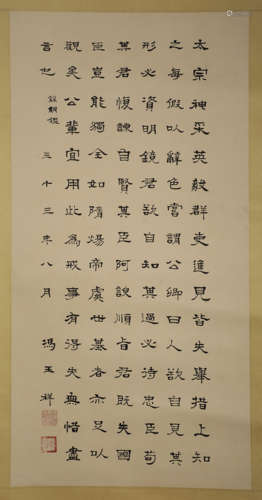 太宗神采英毅群吏進見皆失舉措上知
之每假以辭色嘗謂公卿曰人欲自見其
形必資明鏡君欲自知其過必待忠臣苟
其君愎諫自賢其臣阿諛順旨君既失國
臣豈能獨全如隋煬帝虞世基者亦足以
觀矣公輩宜用此為戒事有得失無惜盡
言也 三十三年八月 馮玉祥